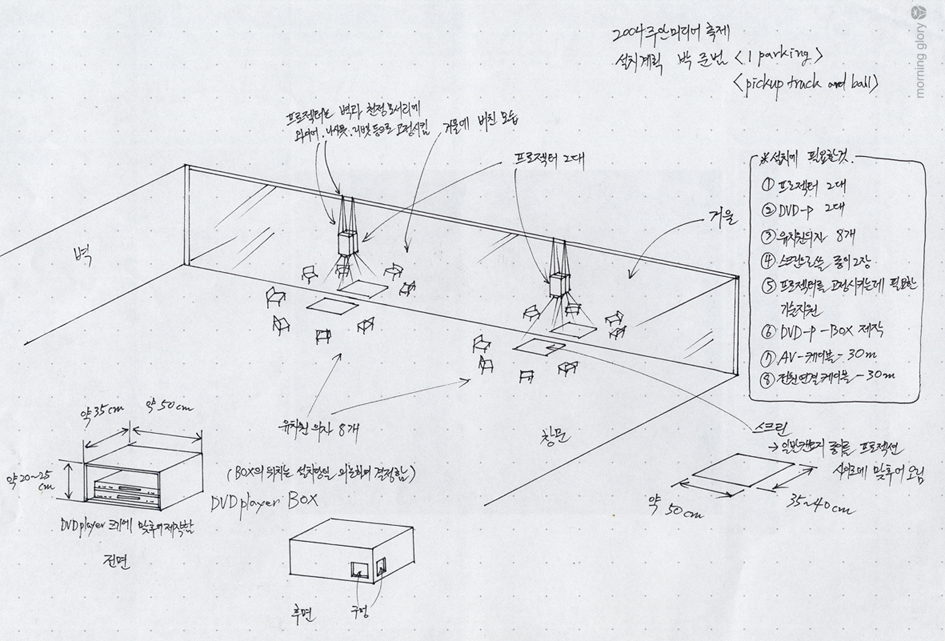 2004 주안미디어 축제
설치계획 박준범 <1 parking>
<pickup truck and ball>
morning glory
프로젝터는 벽과 천정 모서리에
와이어, 나사못, 등으로 고정시킴
거울에 비친 모습
프로젝터 2대
거울
벽
※ 설치에 필요한것.
① 프로젝터 2대
② DVD-P 2대
③ 유치원의자 8개
④ 스크린으로쓸 종이 2장
⑤ 프로젝터를 고정시키는데 필요한
기술지원
⑥ DVD-P-BOX 제작
⑦ AV-케이블-30m
⑧ 전원연결케이블-30m
유치원 의자 8개
창문
스크린
→ 일반 종이를 프로젝션
사이즈에 맞추어 오림
약 50cm
35~40cm
약 35cm
약 50cm
약 20~25
cm
DVD player 크기에 맞추어 제작함
전면
(BOX의 위치는 설치당일 의논하여 결정함)
DVD player BOX
후면
구멍